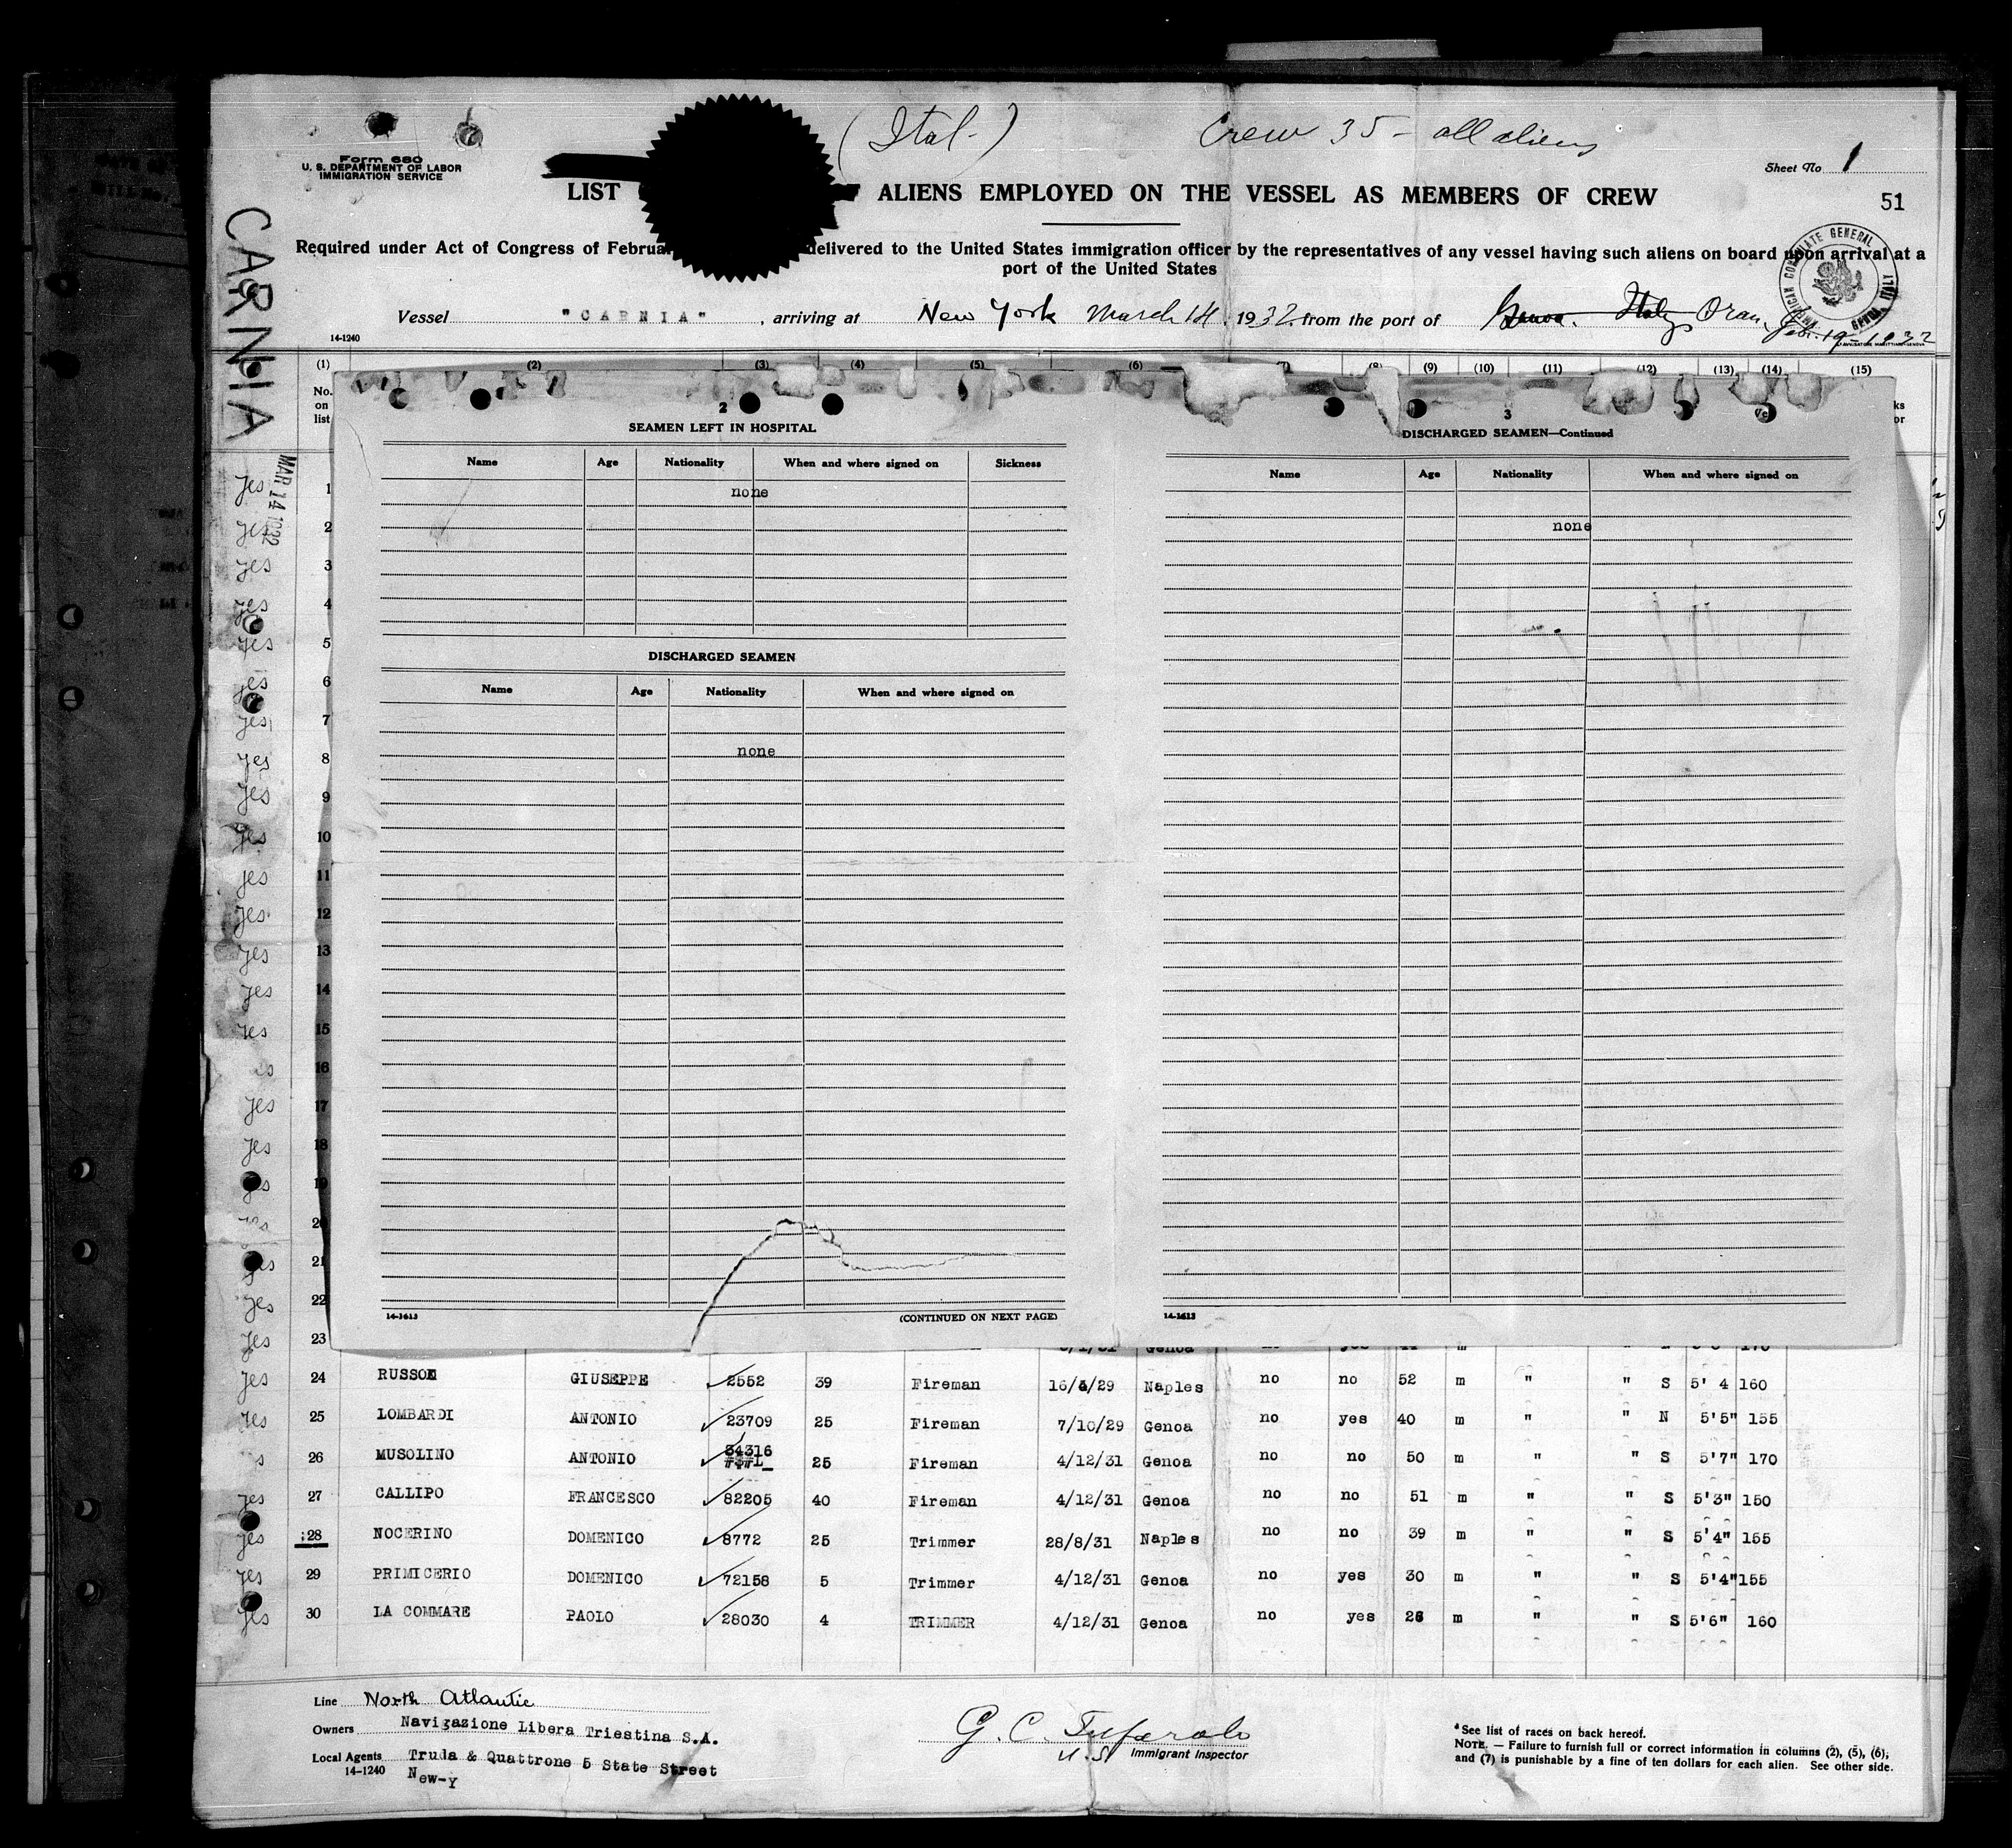 (Ital-)
Crew 35 - all aliens
Form 680
U. S. DEPARTMENT OF LABOR
IMMIGRATION SERVICE
Sheet No 1
LIST ALIENS EMPLOYED ON THE VESSEL AS MEMBERS OF CREW
51
Required under Act of Congress of Februar delivered to the United States immigration officer by the representatives of any vessel having such aliens on board upon arrival at a
port of the United States
AMERICAN CONSULATE GENERAL GENOA ITALY
Vessel "CARNIA", arriving at New York March 14, 1932, from the port of Genoa. Italy Oran,
Feb. 19-1932
14-1240
CARNIA
MAR 14 1932
(1) (2) (3) (4) (5) (6) (7) (8) (9) (10) (11) (12) (13) (14) (15)
No.
on
list
ks
or
2
SEAMEN LEFT IN HOSPITAL
Name Age Nationality When and where signed on Sickness
none
DISCHARGED SEAMEN
Name Age Nationality When and where signed on
none
14-1613 (CONTINUED ON NEXT PAGE)
3
DISCHARGED SEAMEN—Continued
Name Age Nationality When and where signed on
none
14-1613
yes 1
yes 2
yes 3
yes 4
yes 5
yes 6
yes 7
yes 8
yes 9
yes 10
yes 11
yes 12
yes 13
yes 14
yes 15
16
yes 17
yes 18
yes 19
20
yes 21
yes 22
yes 23 Genoa no yes 44 m 170
yes 24 RUSSO GIUSEPPE 2552 39 Fireman 16/4/29 Naples no no 52 m " " S 5' 4 160
yes 25 LOMBARDI ANTONIO 23709 25 Fireman 7/10/29 Genoa no yes 40 m " " N 5'5" 155
26 MUSOLINO ANTONIO 34316 25 Fireman 4/12/31 Genoa no no 50 m " " S 5'7" 170
yes 27 CALLIPO FRANCESCO 82205 40 Fireman 4/12/31 Genoa no no 51 m " " S 5'3" 150
yes 28 NOCERINO DOMENICO 8772 25 Trimmer 28/8/31 Naples no no 39 m " " S 5'4" 155
yes 29 PRIMICERIO DOMENICO 72158 5 Trimmer 4/12/31 Genoa no yes 30 m " " S 5'4" 155
yes 30 LA COMMARE PAOLO 28030 4 TRIMMER 4/12/31 Genoa no yes 26 m " " S 5'6" 160
Line North Atlantic
Owners Navigazione Libera Triestina S.A.
Local Agents Truda & Quattrone 5 State Street
14-1240 New-Y
G. C. Tufarolo
U.S. Immigrant Inspector
*See list of races on back hereof.
NOTE. — Failure to furnish full or correct information in columns (2), (5), (6),
and (7) is punishable by a fine of ten dollars for each alien. See other side.